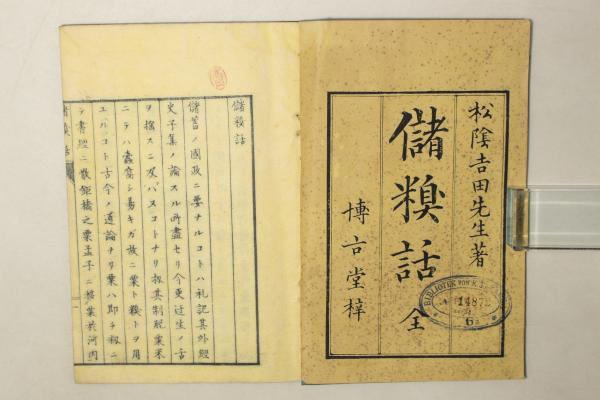 松陰吉田先生著
儲糗話 全
博古堂梓
BIBLIOTEK VON
14872
儲糗話
儲蓄ノ國政ニ要ナルコトハ礼記其外經
史子集ノ論スル所盡セリ今更迂生ノ舌
ヲ擔スニ及バズコトナリ扨其制脱粟米
ニテハ蠹腐シ易キガ故ニ粟ト糗トヲ用
ユルコト古今ノ通論ナリ粟ハ即チ籾ニ
テ書經ニ散鉅橋之粟孟子ニ移粟於河内